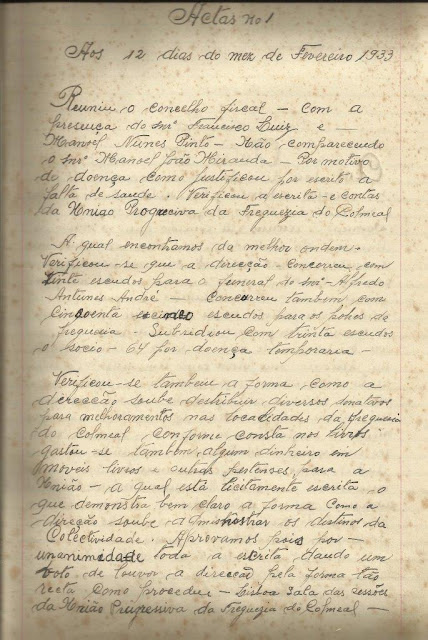 Actas no 1
Aos 12 dias do mez de Fevereiro 1933
Reuniu o concelho fiscal – com a
presença do snr Francisco Luiz e –
Manoel Nunes Pinto – Não comparecendo
o snr Manoel João Miranda – Por motivo
de doença como justeficou por escrito a
falta de saude. Verificou a escrita – e contas
da União Progreciva da Freguezia do Colmeal
A qual encontramos da melhor ordem.
Verificou-se que a direcção concorreu com
vinte escudos para o funeral do snr – Alfredo
Antunes André – Concorreu tambem com
cincoenta escudos para os pobres da
freguesia. Subsidiou com trinta escudos
o socio – 64 por doença temporaria –
Verificou-se tambem a forma como a
derecção soube destribuir diversos donativos
para melhoramentos nas localidades da freguesia
do Colmeal, conforme consta nos livros
gastou-se tambem algum dinheiro em
moveis livros e outras pertenses para a
União – a qual está licitamente escrita o
que demonstra bem claro a forma como a
direção soube administrar os destinos da
Colectividade. Aprovamos pois por –
unanimedade toda a escrita dando um
voto de louvor a direcção pela forma tão
recta como procedeu – Lisboa Sala das sessões
da União Progressiva da Freguesia do Colmeal –